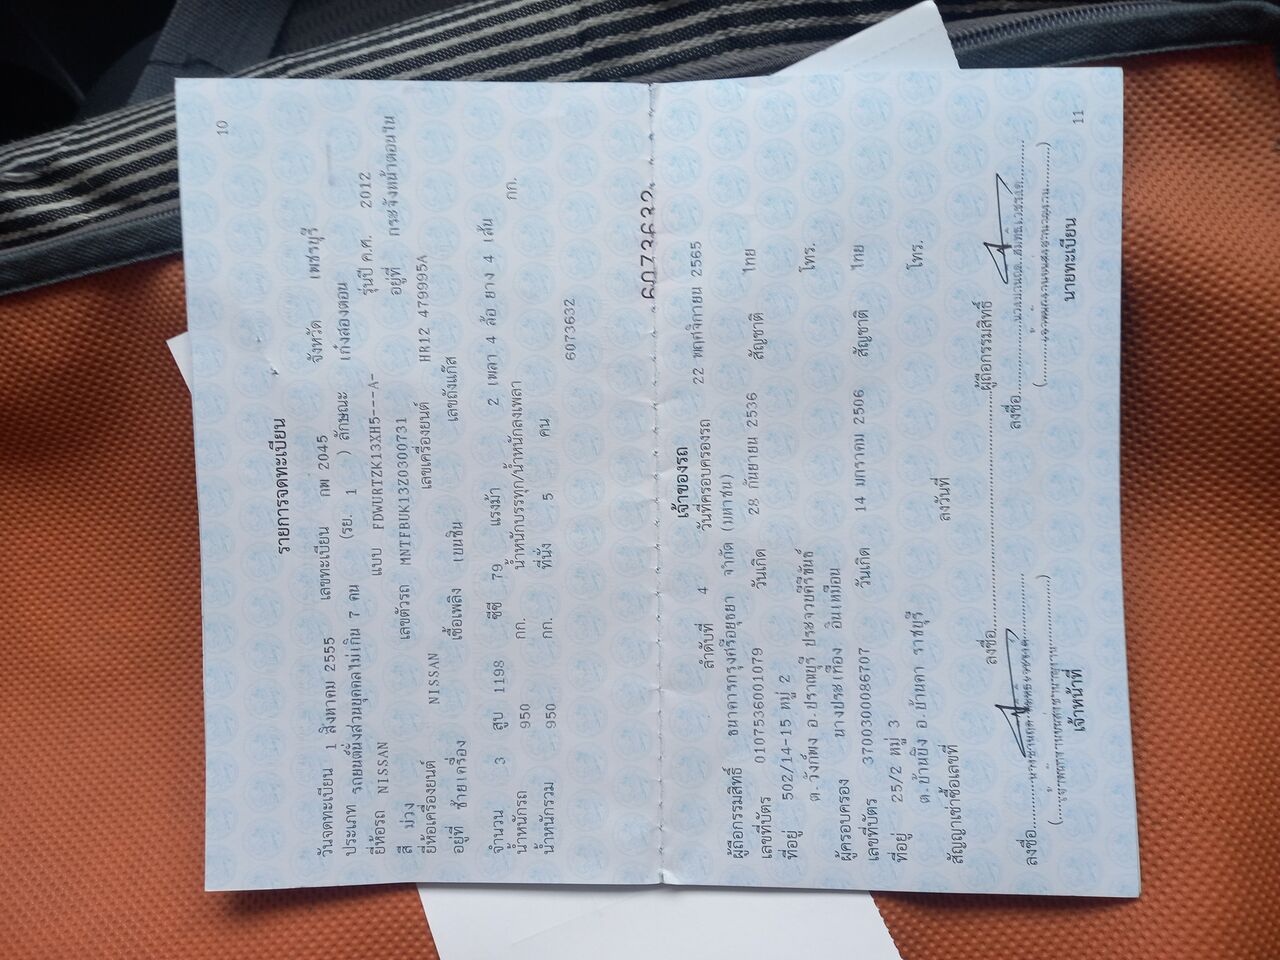 10
รายการจดทะเบียน
วันจดทะเบียน 1 สิงหาคม 2555 เลขทะเบียน กพ 2045 จังหวัด เพชรบุรี
ประเภท รถยนต์นั่งส่วนบุคคลไม่เกิน 7 คน (รย. 1 ) ลักษณะ เก๋งสองตอน
ยี่ห้อรถ NISSAN แบบ FDWURTZK13XH5---A- รุ่นปี ค.ศ. 2012
สี ม่วง เลขตัวรถ MNTFBUK13Z0300731 อยู่ที่ กระจังหน้าตอนใน
ยี่ห้อเครื่องยนต์ NISSAN เลขเครื่องยนต์ HR12 479995A
อยู่ที่ ซ้ายเครื่อง เชื้อเพลิง เบนซิน เลขถังแก๊ส
จำนวน 3 สูบ 1198 ซีซี 79 แรงม้า 2 เพลา 4 ล้อ ยาง 4 เส้น
น้ำหนักรถ 950 กก. น้ำหนักบรรทุก/น้ำหนักลงเพลา กก.
น้ำหนักรวม 950 กก. ที่นั่ง 5 คน
6073632
6073632
เจ้าของรถ
ลำดับที่ 4 วันที่ครอบครองรถ 22 พฤศจิกายน 2565
ผู้ถือกรรมสิทธิ์ ธนาคารกรุงศรีอยุธยา จำกัด (มหาชน)
เลขที่บัตร 0107536001079 วันเกิด 28 กันยายน 2536 สัญชาติ ไทย
ที่อยู่ 502/14-15 หมู่ 2
ต.วังก์พง อ.ปราณบุรี ประจวบคีรีขันธ์ โทร.
ผู้ครอบครอง นางประเทือง อินเหมือน
เลขที่บัตร 3700300086707 วันเกิด 14 มกราคม 2506 สัญชาติ ไทย
ที่อยู่ 25/2 หมู่ 3
ต.บ้านบึง อ.บ้านคา ราชบุรี โทร.
สัญญาเช่าซื้อเลขที่ ลงวันที่
ลงชื่อ ผู้ถือกรรมสิทธิ์
ลงชื่อ ลงชื่อ
เจ้าหน้าที่ นายทะเบียน
11